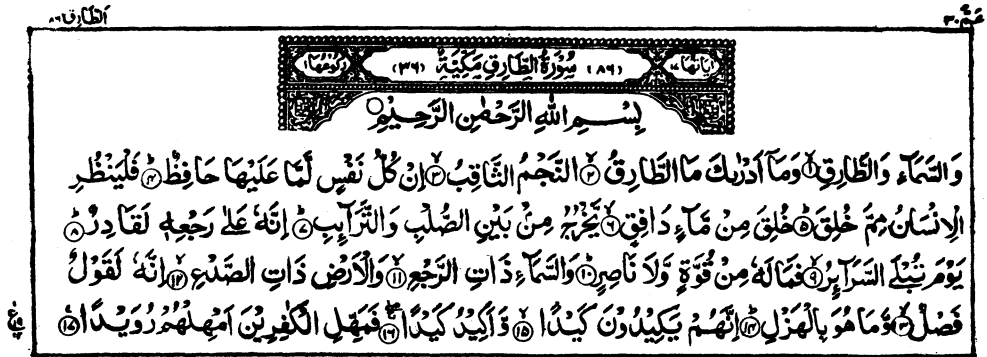 عَمَّ ٣٠ الطَّارِق ٨٦
اٰيَاتُهَا ١٧ (٨٦) سُوْرَةُ الطَّارِقِ مَكِّيَّةٌ (٣٦) رُكُوْعُهَا ١
بِسْمِ اللّٰهِ الرَّحْمٰنِ الرَّحِيْمِ
وَالسَّمَآءِ وَالطَّارِقِ ۙ﴿١﴾ وَمَاۤ اَدْرٰىكَ مَا الطَّارِقُ ۙ﴿٢﴾ النَّجْمُ الثَّاقِبُ ۙ﴿٣﴾ اِنْ كُلُّ نَفْسٍ لَّمَّا عَلَيْهَا حَافِظٌ ؕ﴿٤﴾ فَلْيَنْظُرِ
الْاِنْسَانُ مِمَّ خُلِقَ ؕ﴿٥﴾ خُلِقَ مِنْ مَّآءٍ دَافِقٍ ۙ﴿٦﴾ يَّخْرُجُ مِنْۢ بَيْنِ الصُّلْبِ وَالتَّرَآئِبِ ؕ﴿٧﴾ اِنَّهٗ عَلٰى رَجْعِهٖ لَقَادِرٌ ؕ﴿٨﴾
يَوْمَ تُبْلَى السَّرَآئِرُ ۙ﴿٩﴾ فَمَا لَهٗ مِنْ قُوَّةٍ وَّلَا نَاصِرٍ ؕ﴿١٠﴾ وَالسَّمَآءِ ذَاتِ الرَّجْعِ ۙ﴿١١﴾ وَالْاَرْضِ ذَاتِ الصَّدْعِ ۙ﴿١٢﴾ اِنَّهٗ لَقَوْلٌ
فَصْلٌ ۙ﴿١٣﴾ وَّمَا هُوَ بِالْهَزْلِ ؕ﴿١٤﴾ اِنَّهُمْ يَكِيْدُوْنَ كَيْدًا ۙ﴿١٥﴾ وَّاَكِيْدُ كَيْدًا ۚۖ﴿١٦﴾ فَمَهِّلِ الْكٰفِرِيْنَ اَمْهِلْهُمْ رُوَيْدًا ﴿١٧﴾